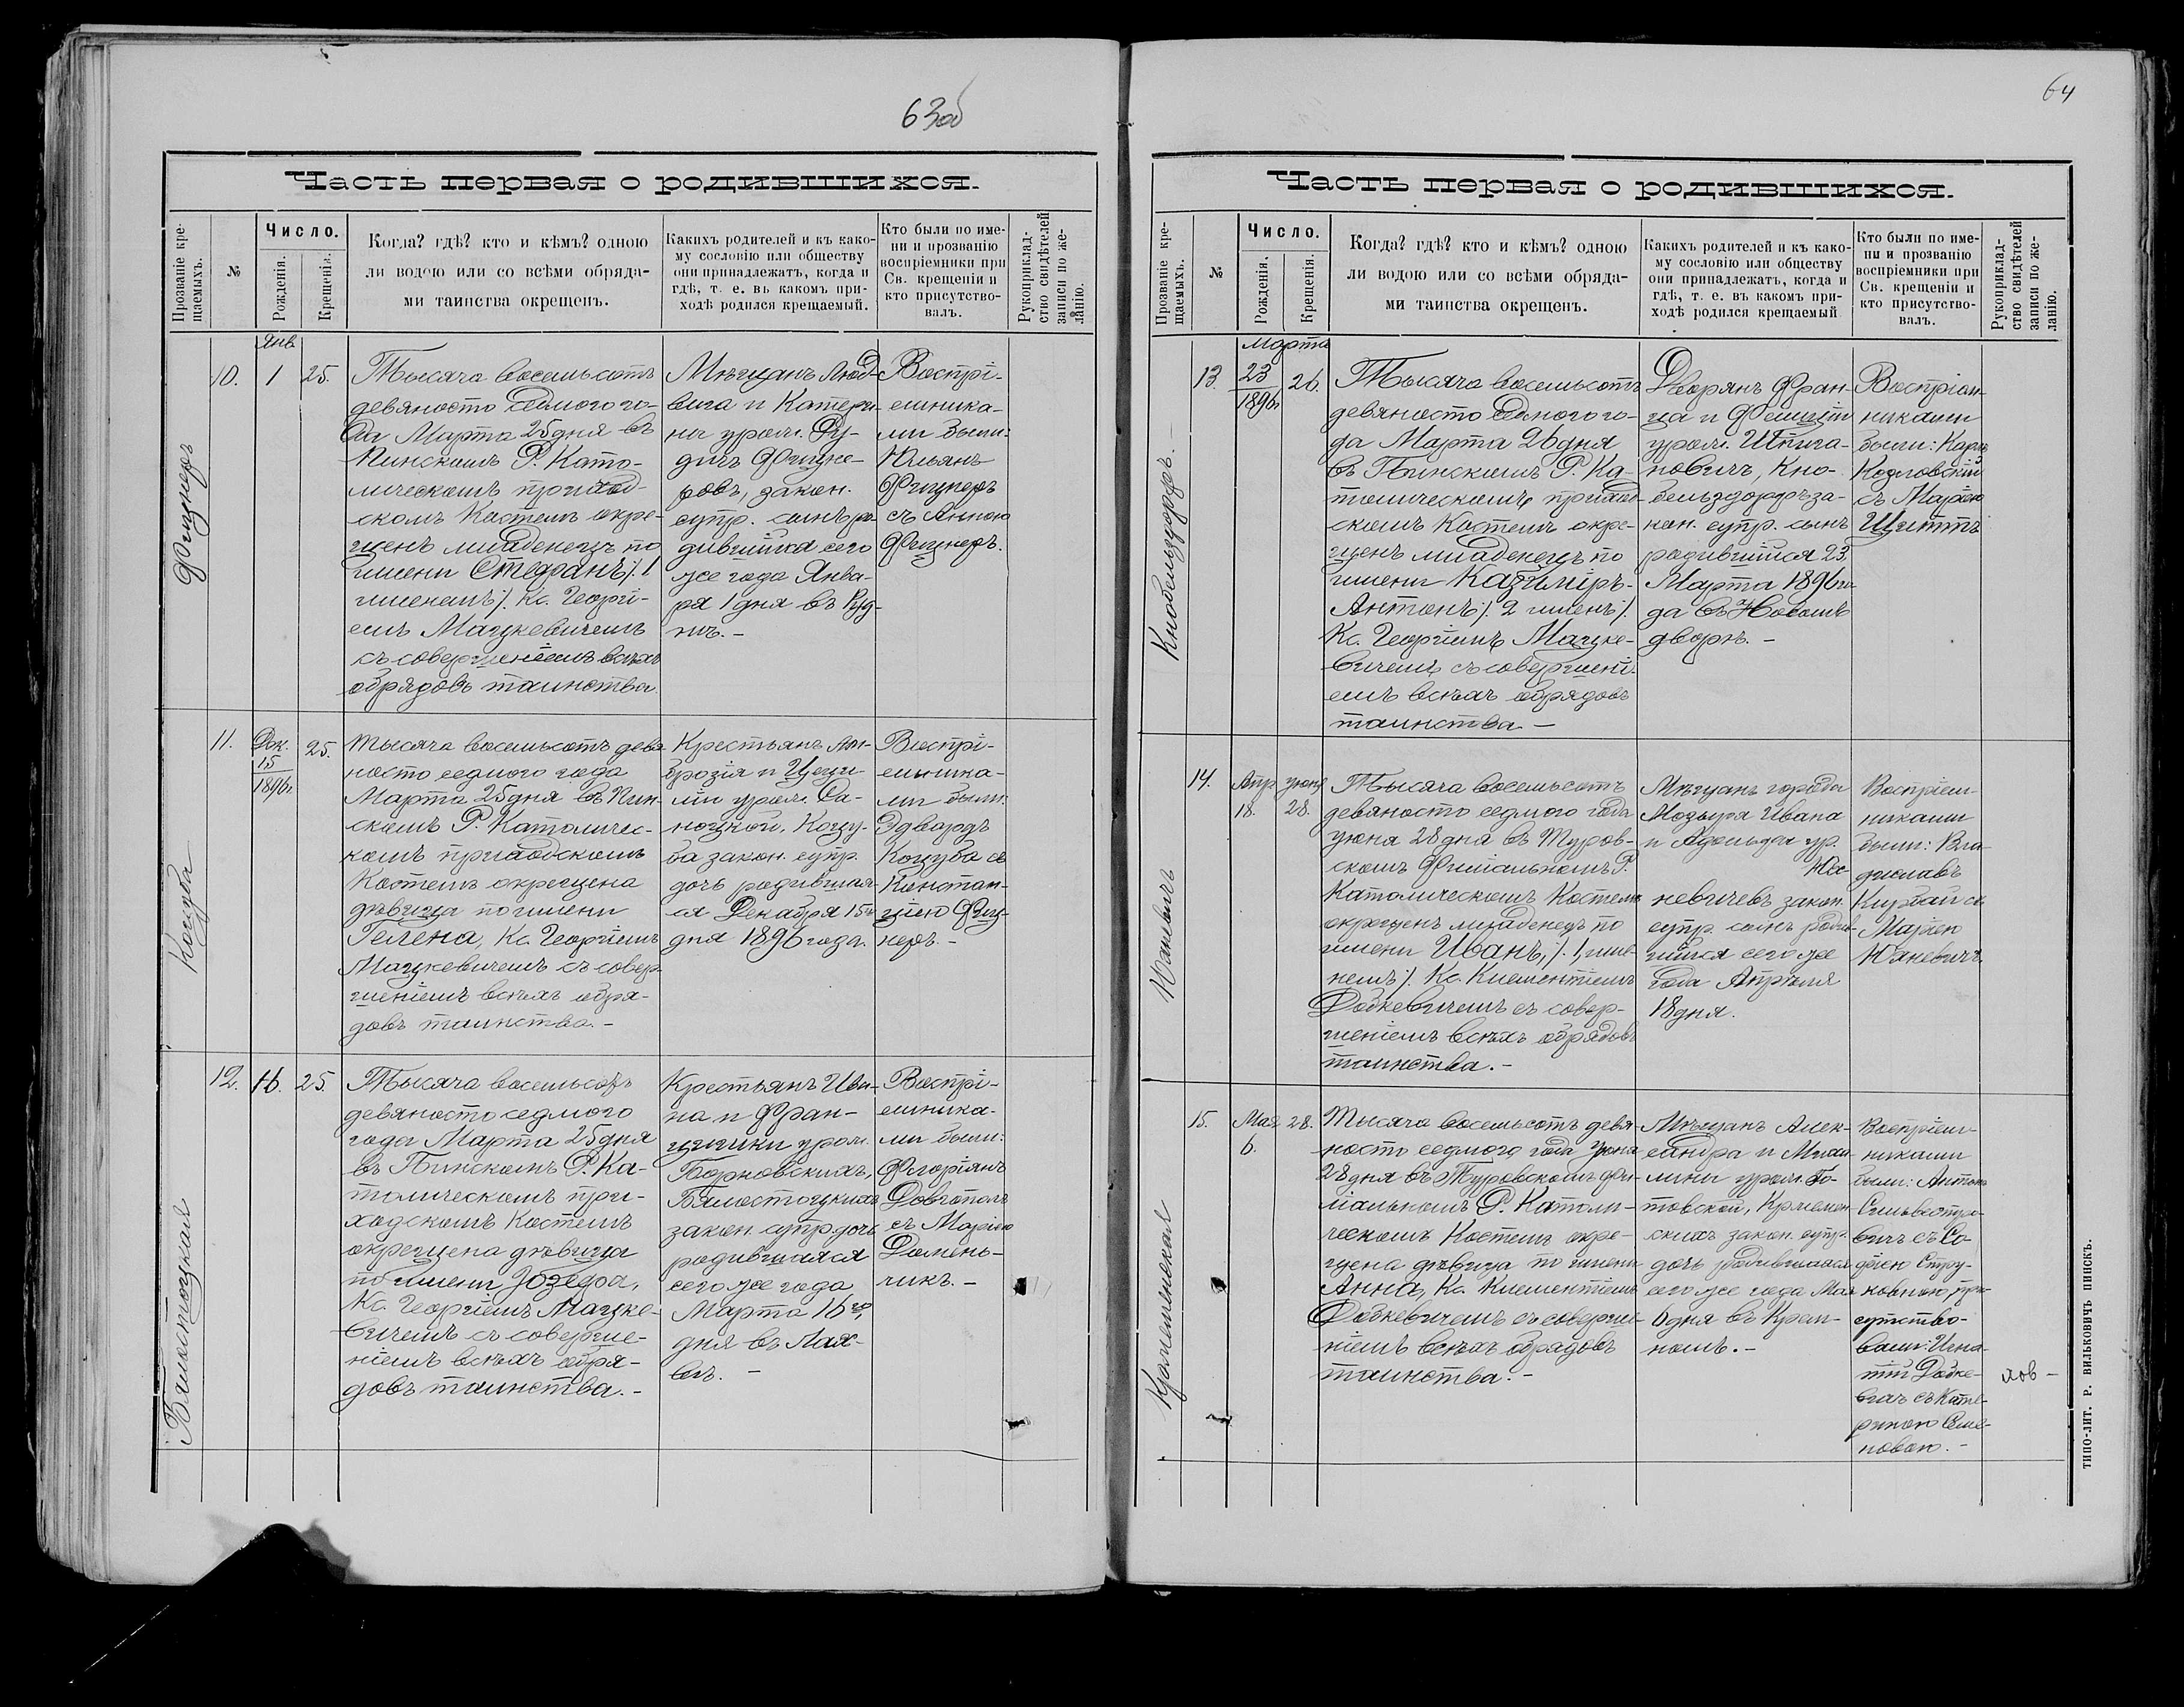 63об
Часть первая о родившихся.
Прозваніе кре-
щаемыхъ.
№
Число.
Рожденія.
Крещенія.
Когда? гдѣ? кто и кѣмъ? одною
ли водою или со всѣми обряда-
ми таинства окрещенъ.
Какихъ родителей и къ како-
му сословію или обществу
они принадлежатъ, когда и
гдѣ, т. е. въ какомъ при-
ходѣ родился крещаемый.
Кто были по име-
ни и прозванію
воспріемники при
Св. крещеніи и
кто присутство-
валъ.
Рукоприклад-
ство свидѣтелей
записи по же-
ланію.
Фицнеръ
10.
Янв
1
25.
Тысяча восемьсотъ
девяносто седмого го-
да Марта 25 дня въ
Пинскомъ Р. Като-
лическомъ приход-
скомъ Костелѣ окре-
щенъ младенецъ по
имени Стефанъ /. 1
именемъ /. Кс. Георгі-
емъ Мацкевичемъ
съ совершеніемъ всѣхъ
обрядовъ таинства.
Мѣщанъ Люд-
вига и Катери-
ны урож.
дичъ Фицне-
ровъ, закон.
супр. сынъ ро-
дившійся сего
же года Янва-
ря 1 дня въ Руд-
нѣ. -
Воспрі-
емника-
ми были:
Юльянъ
Фицнеръ
съ Анною
Фицнеръ.
Коцуба
11.
Дек.
15
1896г.
25.
Тысяча восемьсотъ девя-
носто седмого года
Марта 25 дня въ Пин-
скомъ Р. Католичес-
комъ приходскомъ
Костелѣ окрещена
дѣвица по имени
Гелена, Кс. Георгіемъ
Мацкевичемъ съ совер-
шеніемъ всѣхъ обря-
довъ таинства. -
Крестьянъ Ам-
брозія и Цеци-
ліи урож. Са-
ноцкой, Коцу-
ба закон. супр.
дочь родившая-
ся Декабря 15го
дня 1896 года.
Воспрі-
емника-
ми были:
Эдвардъ
Коцуба съ
Констан-
ціею Фиц-
неръ. -
Бялостоцкая
12.
16.
25.
Тысяча восемьсотъ
девяносто седмого
года Марта 25 дня
въ Пинскомъ Р. Ка-
толическомъ при-
ходскомъ Костелѣ
окрещена дѣвица
по имени Іозефа,
Кс. Георгіемъ Мацке-
вичемъ съ соверше-
ніемъ всѣхъ обря-
довъ таинства. -
Крестьянъ Ива-
на и Фран-
цишки урож.
Борновскихъ,
Бялостоцкихъ
закон. супр. дочь
родившаяся
сего же года
Марта 16го
дня въ Лах-
вѣ. -
Воспрі-
емника-
ми были:
Флоріянъ
Довгополъ
съ Маріею
Домень-
чикъ. -
64
Часть первая о родившихся.
Прозваніе кре-
щаемыхъ.
№
Число.
Рожденія.
Крещенія.
Когда? гдѣ? кто и кѣмъ? одною
ли водою или со всѣми обряда-
ми таинства окрещенъ.
Какихъ родителей и къ како-
му сословію или обществу
они принадлежатъ, когда и
гдѣ, т. е. въ какомъ при-
ходѣ родился крещаемый
Кто были по име-
ни и прозванію
воспріемники при
Св. крещеніи и
кто присутство-
валъ.
Рукоприклад-
ство свидѣтелей
записи по же-
ланію.
Кнобельздорфъ. -
13.
Марта
23
1896г
26.
Тысяча восемьсотъ
девяносто седмого го-
да Марта 26 дня
въ Пинскомъ Р. Ка-
толическомъ приход-
скомъ Костелѣ окре-
щенъ младенецъ по
имени Казиміръ-
Антонъ /. 2 именъ /.
Кс. Георгіемъ Мацке-
вичемъ съ совершені-
емъ всѣхъ обрядовъ
таинства -
Дворянъ Фран-
ца и Фелиціи
урож.
новичъ, Кно-
бельздорфъ за-
кон. супр. сынъ
родившійся 23
Марта 1896 го-
да въ Новомъ
дворѣ. -
Воспріем-
никами
были: Карлъ
Козловскій
съ Маріею
Щиттъ
14.
Апр
18.
Іюня
28.
Тысяча восемьсотъ
девяносто седмого года
Іюня 28 дня въ Туров-
скомъ Филіальномъ Р.
Католическомъ Костелѣ
окрещенъ младенецъ по
имени Иванъ, /. 1, име-
немъ /. Кс. Клементіемъ
Додкевичемъ съ совер-
шеніемъ всѣхъ обрядовъ
таинства. -
Мѣщанъ города
Мозыря Ивана
и Адольфы ур.
невичевъ закон.
супр. сынъ родив-
шійся сего же
года Апрѣля
18 дня.
Воспріем-
никами
были: Вла-
диславъ
съ
Маріею
Юхневичъ.
Кременевская
15.
Мая
6.
28.
Тысяча восемьсотъ девя-
носто седмого года Іюня
28 дня въ Туровскомъ Фи-
ліальномъ Р. Католи-
ческомъ Костелѣ окре-
щена дѣвица по имени
Анна, Кс. Клементіемъ
Додкевичемъ съ соверше-
ніемъ всѣхъ обрядовъ
таинства. -
Мѣщанъ Алек-
сандра и Миха-
лины урож.
товской, Кремен-
скихъ закон. супр.
дочь родившаяся
сего же года Мая
6 дня въ Крем-
номъ. -
Воспріем-
никами
были: Антонъ
Сильвестро-
вичъ съ Со-
фіею Стру-
ковною, при-
сутство-
вали: Игна-
тій Додке-
вичъ съ Кате-
риною Семе-
новою. -
типо-лит. р. вильковичъ пинскъ.